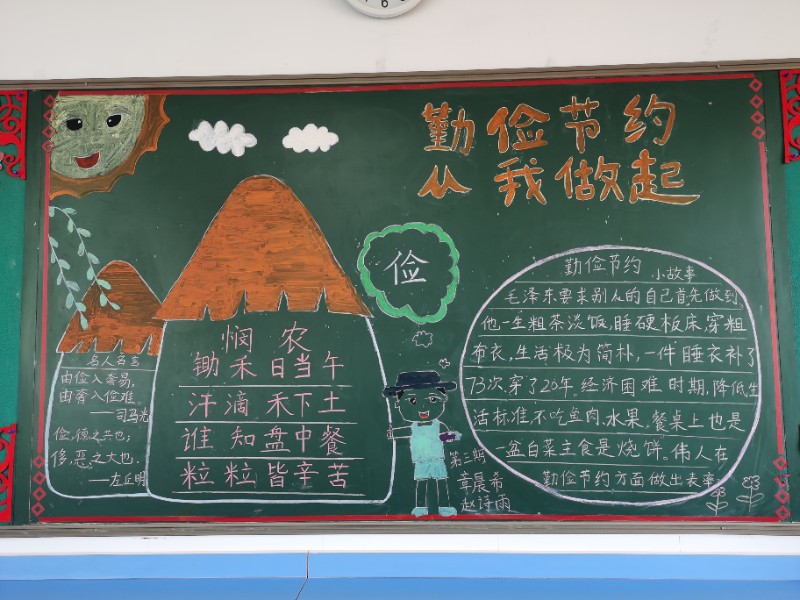 勤俭节约
从我做起
俭
名人名言
由俭入奢易,
由奢入俭难。
——司马光
俭,德之共也;
侈,恶之大也.
——左丘明
悯农
锄禾日当午
汗滴禾下土
谁知盘中餐
粒粒皆辛苦
勤俭节约 小故事
毛泽东要求别人的自己首先做到,
他一生粗茶淡饭,睡硬板床,穿粗
布衣,生活极为简朴,一件睡衣补了
73次,穿了20年。经济困难时期,降低生
活标准,不吃鱼肉、水果。餐桌上也是
一盆白菜主食是烧饼。伟人在
勤俭节约方面做出表率
第三期
章晨希
赵诗雨